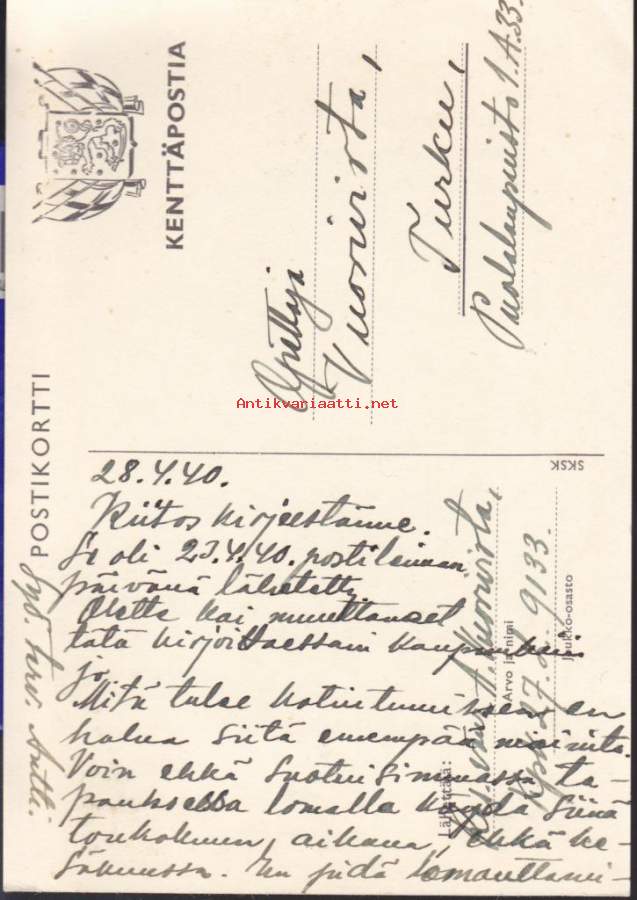 POSTIKORTTI
KENTTÄPOSTIA
Opettaja
Vuorivirta,
Turku,
Puolalanpuisto 1.A.33.
SKSK
Lähettäjä:
Vuorivirta,
Arvo ja nimi
27. 9133.
Joukko-osasto
28.4.40.
Kiitos kirjeestänne.
Se oli 23.4.40. postileiman
päivänä lähetetty
Olette kai muuttaneet
tätä kirjoittaessani kaupunkiin
jo.
Mitä tulee kotiutumiseen en
halua siitä enempää mainita.
Voin ehkä suotuisimmassa ta-
pauksessa lomalla käydä siinä
toukokuun, aikana, ehkä ke-
säkuussa. En pidä lomauttami-
Syd. terv. Antti.
Antikvariaatti.net